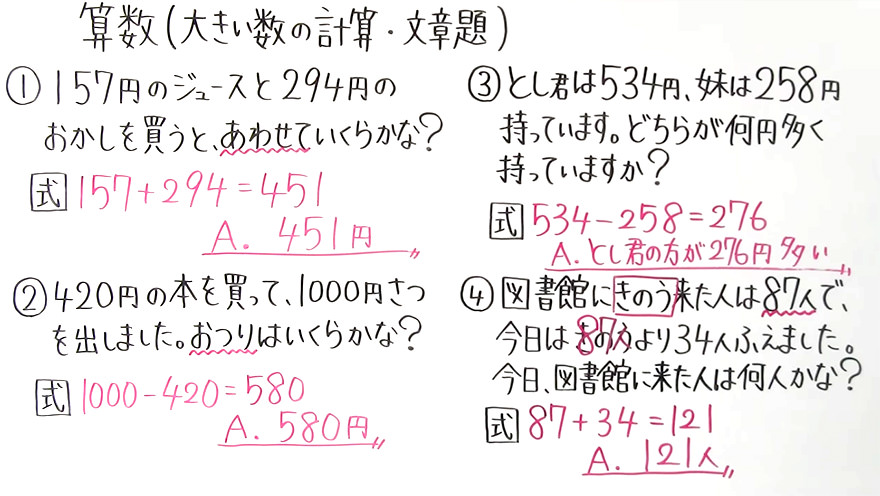 算数(大きい数の計算・文章題)
① 157円のジュースと294円の
おかしを買うと、あわせていくらかな?
式 157+294=451
A. 451円
② 420円の本を買って、1000円さつ
を出しました。おつりはいくらかな?
式 1000-420=580
A. 580円
③ とし君は534円、妹は258円
持っています。どちらが何円多く
持っていますか?
式 534-258=276
A. とし君の方が276円多い
④ 図書館にきのう来た人は87人で、
今日はきのうより34人ふえました。
87人
今日、図書館に来た人は何人かな?
式 87+34=121
A. 121人